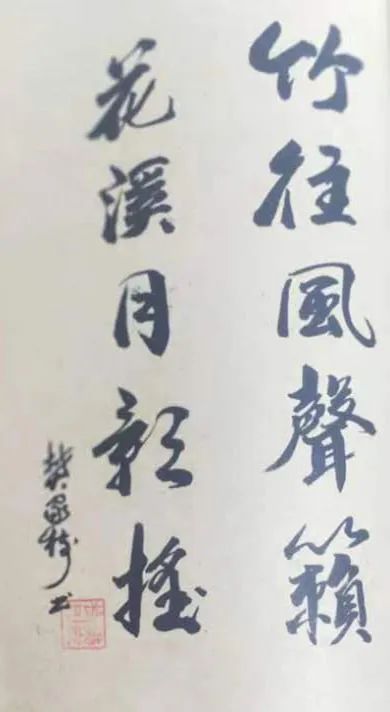 竹往風聲籟
花溪月影搖